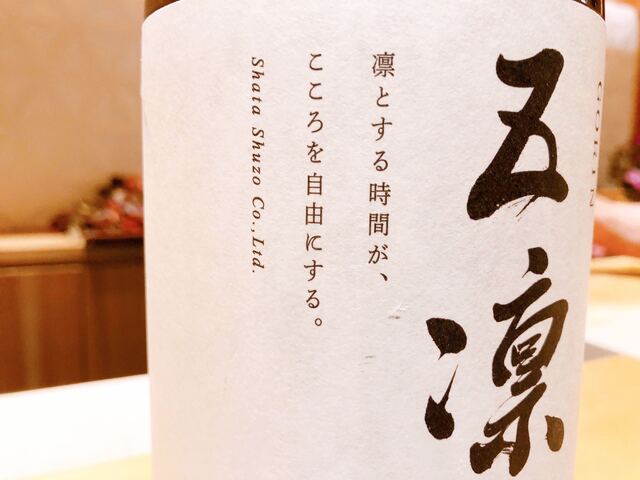 GORIN
五凛
凛とする時間が、
こころを自由にする。
Shata Shuzo Co.,Ltd.